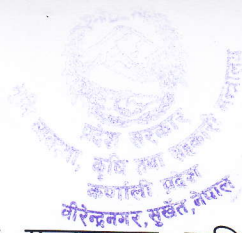 प्रदेश सरकार
भूमि व्यवस्था, कृषि तथा सहकारी मन्त्रालय
कर्णाली प्रदेश
वीरेन्द्रनगर, सुर्खेत, नेपाल